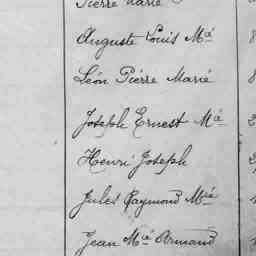 Pierre Marie
Auguste Louis Mie
Léon Pierre Marie
Joseph Ernest Mie
Henri Joseph
Jules Raymond Mie
Jean Mie Armand